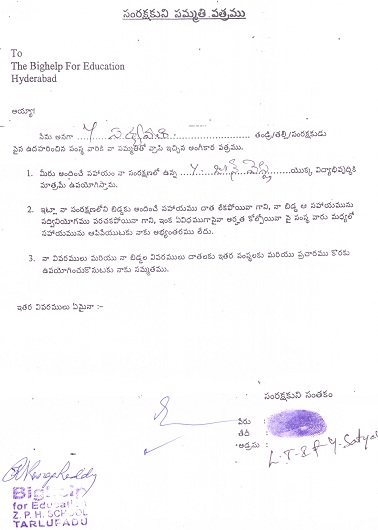 సంరక్షకుని సమ్మతి పత్రము
To
The Bighelp For Education
Hyderabad
అయ్యా!
నేను అనగా Y సత్యవతి తండ్రి/తల్లి/సంరక్షకుడు
పైన ఉదహరించిన సంస్థ వారికి నా సమ్మతితో వ్రాసి ఇచ్చిన అంగీకార పత్రము.
1. మీరు అందించే సహాయం నా సంరక్షణలో ఉన్న Y. యొక్క విద్యాభివృద్ధికి
మాత్రమే ఉపయోగిస్తాము.
2. ఇట్లా నా సంరక్షణలోని బిడ్డకు అందించే సహాయము దాత లేకపోయినా గాని, నా బిడ్డ ఆ సహాయమును
సద్వినియోగము పరచకపోయినా గాని, ఇంక ఏవిధముగానైనా అర్హత కోల్పోయినా పై సంస్థ వారు మధ్యలో
సహాయమును ఆపివేయుటకు నాకు అభ్యంతరము లేదు.
3. నా వివరములు మరియు నా బిడ్డల వివరములు దాతలకు ఇతర సంస్థలకు మరియు ప్రచారము కొరకు
ఉపయోగించుకొనుటకు నాకు సమ్మతము.
ఇతర వివరములు ఏమైనా :-
సంరక్షకుని సంతకం
పేరు :
తేదీ :
అడ్రసు :
L.T.S of Y. Satya
Bighelp
for Education
Z. P. H. SCHOOL
TARLUPADU